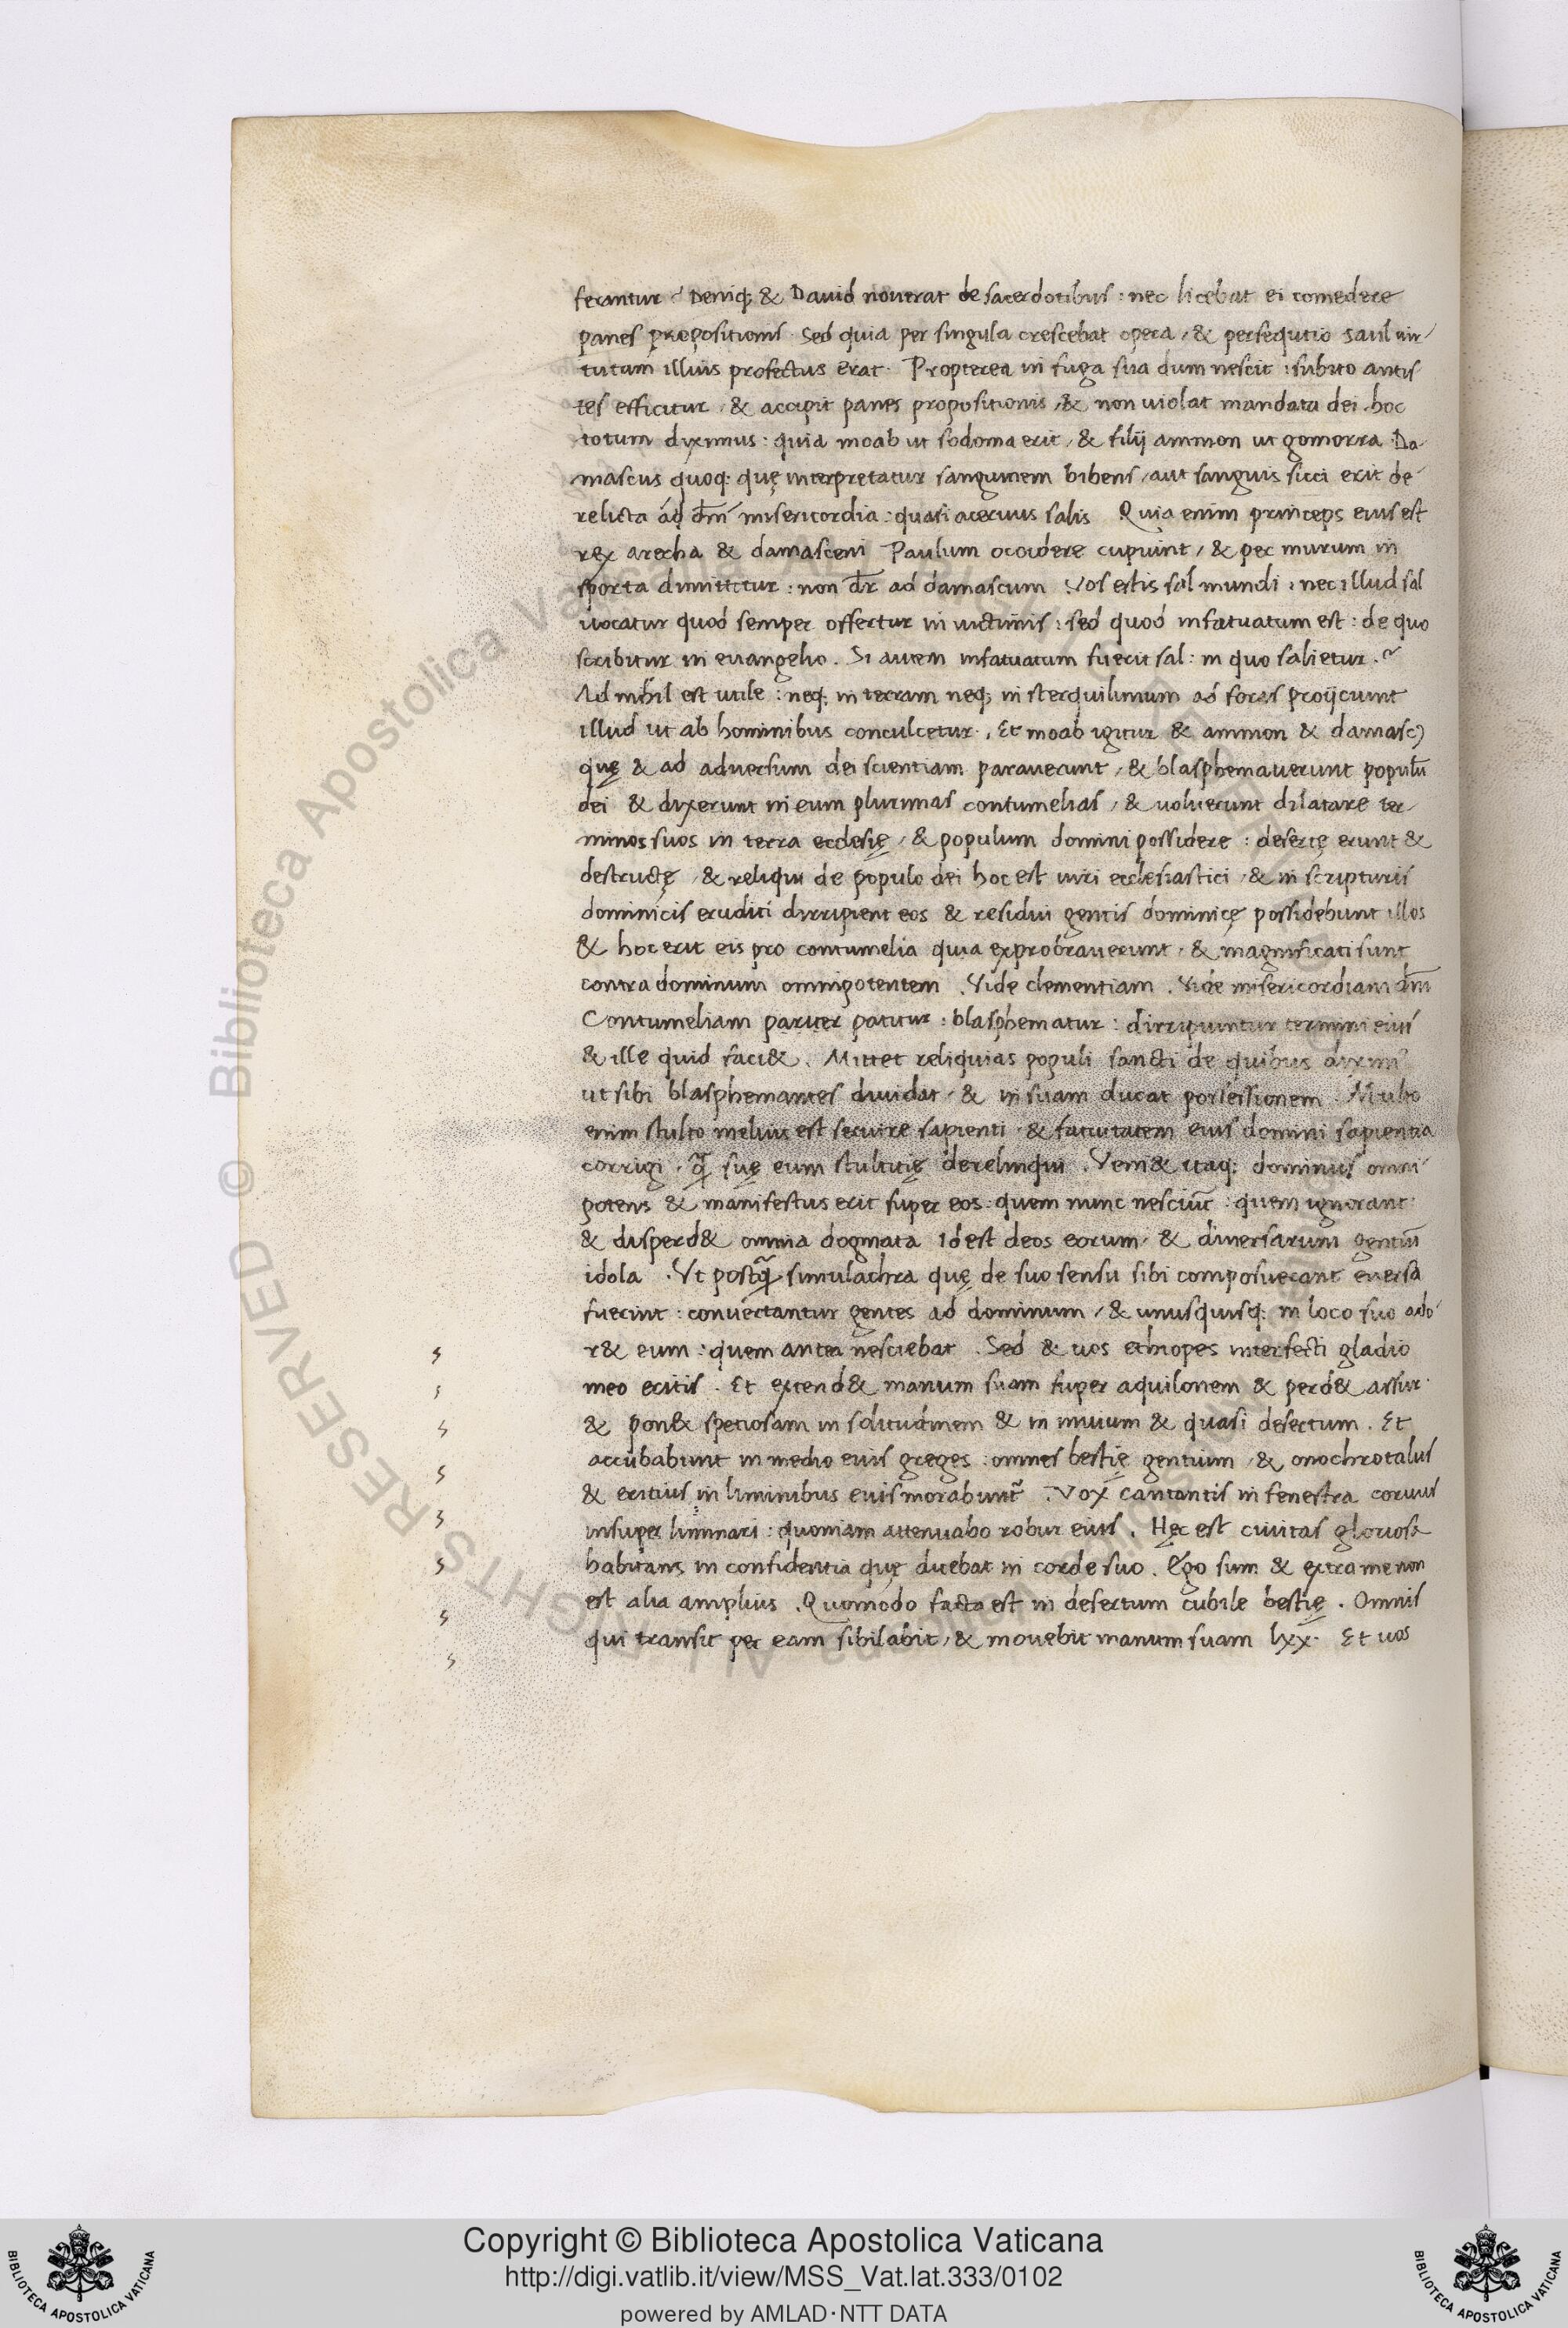 ferantur ? Deniq; & David noverat de sacerdotibus : nec licebat ei comedere
panes propositionis . Sed quia per singula crescebat opera , & persequtio saul vir-
tutum illius profectus erat . Propterea in fuga sua dum nescit : subito antis
tes efficitur , & accipit panes propositionis , & non uiolat mandata dei . hoc
totum diximus : quia moab ut sodoma erit , & filij ammon ut gomorra . Da-
mascus quoq; quę interpretatur sanguinem bibens , aut sanguis sicci erit de-
relicta ad dn̄i misericordia : quasi aceruus salis Quia enim princeps eius est
rex arecha & damasceni Paulum occidere cupiunt , & per murum in
sporta dimittitur : non dr̄ ad damascum . Vos estis sal mundi : nec illud sal
uocatur quod semper offertur in uictimis : sed quod infatuatum est : de quo
scribitur in euangelio . Si autem infatuatum fuerit sal : in quo salietur . ?
Ad nihil est utile : neq; in terram neq; in sterquilinium ad foras proijciunt
illud ut ab hominibus conculcetur . Et moab igitur & ammon & damasc9
quę & ad aduersum dei scientiam parauerunt , & blasphemauerunt populū
dei & dixerunt in eum plurimas contumelias , & uoluerunt dilatare ter-
minos suos in terra ecclesię , & populum domini possidere : desertę erunt &
destructę , & reliqui de populo dei hoc est uiri ecclesiastici , & in scripturis
dominicis eruditi dirripient eos & residui gentis dominicę possidebunt illos
& hoc erit eis pro contumelia quia exprobrauerunt , & magnificati sunt
contra dominum omnipotentem . Vide clementiam . Vide misericordiam dn̄i
Contumeliam pariter patitur : blasphematur : dirripiuntur termini eius
& ille quid faci& . Mittet reliquias populi sancti de quibus dixim9
ut sibi blasphemantes diuidat , & in suam ducat possessionem . Multo
enim stulto melius est seruire sapienti & fatuitatem eius domini sapientia
corrigi . q̄ suę eum stultitię derelinqui . Veni& itaq; dominus omni-
potens & manifestus erit super eos : quem nunc nesciūt : quem ignorant
& disperd& omnia dogmata id est deos eorum , & diuersarum gentiū
idola . Vt postq̄ simulachra quę de suo sensu sibi composuerant euersa
fuerint : conuertantur gentes ad dominum , & unusquisq; in loco suo ado-
r& eum : quem antea nesciebat . Sed & uos ethiopes interfecti gladio
meo eritis . Et extend& manum suam super aquilonem & perd& assur .
& pon& spetiosam in solitudinem & in inuium & quasi desertum . Et
accubabunt in medio eius greges : omnes bestię gentium , & onochrotalus
& eritius in liminibus eius morabunt̃ . Vox cantantis in fenestra coruus
insuper liminari : quoniam attenuabo robur eius . Hęc est ciuitas gloriosa
habitans in confidentia quę dicebat in corde suo . Ego sum & extra me non
est alia amplius . Quomodo facta est in desertum cubile bestię . Omnis
qui transit per eam sibilabit , & mouebit manum suam lxx . Et uos
Copyright © Biblioteca Apostolica Vaticana
http://digi.vatlib.it/view/MSS_Vat.lat.333/0102
powered by AMLAD·NTT DATA